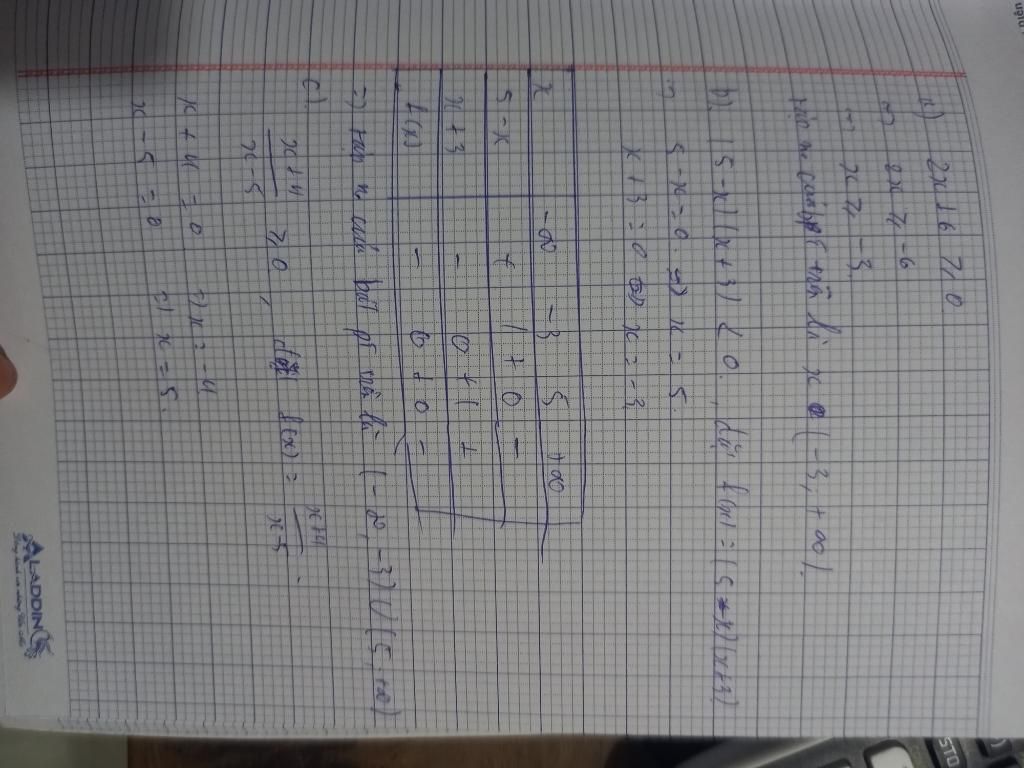 a) 2x+6 ≥ 0
⇔ 2x ≥ -6
⇔ x ≥ -3
Tập n. của bpt trên là x ∈ (-3; +∞).
b) (5-x)(x+3) < 0, đặt f(x) = (5-x)(x+3)
5-x=0 ⇔ x = 5.
x+3=0 ⇔ x = -3
x -∞ -3 5 +∞
5-x + | + 0 -
x+3 - 0 + | +
f(x) - 0 + 0 -
=) tập n. của bất pt trên là (-∞; -3) ∪ (5; +∞)
c) x+4 / x-5 ≥ 0, đặt f(x) = x+4 / x-5.
x+4 = 0 =) x = -4
x-5 = 0 =) x = 5.
ALADDIN